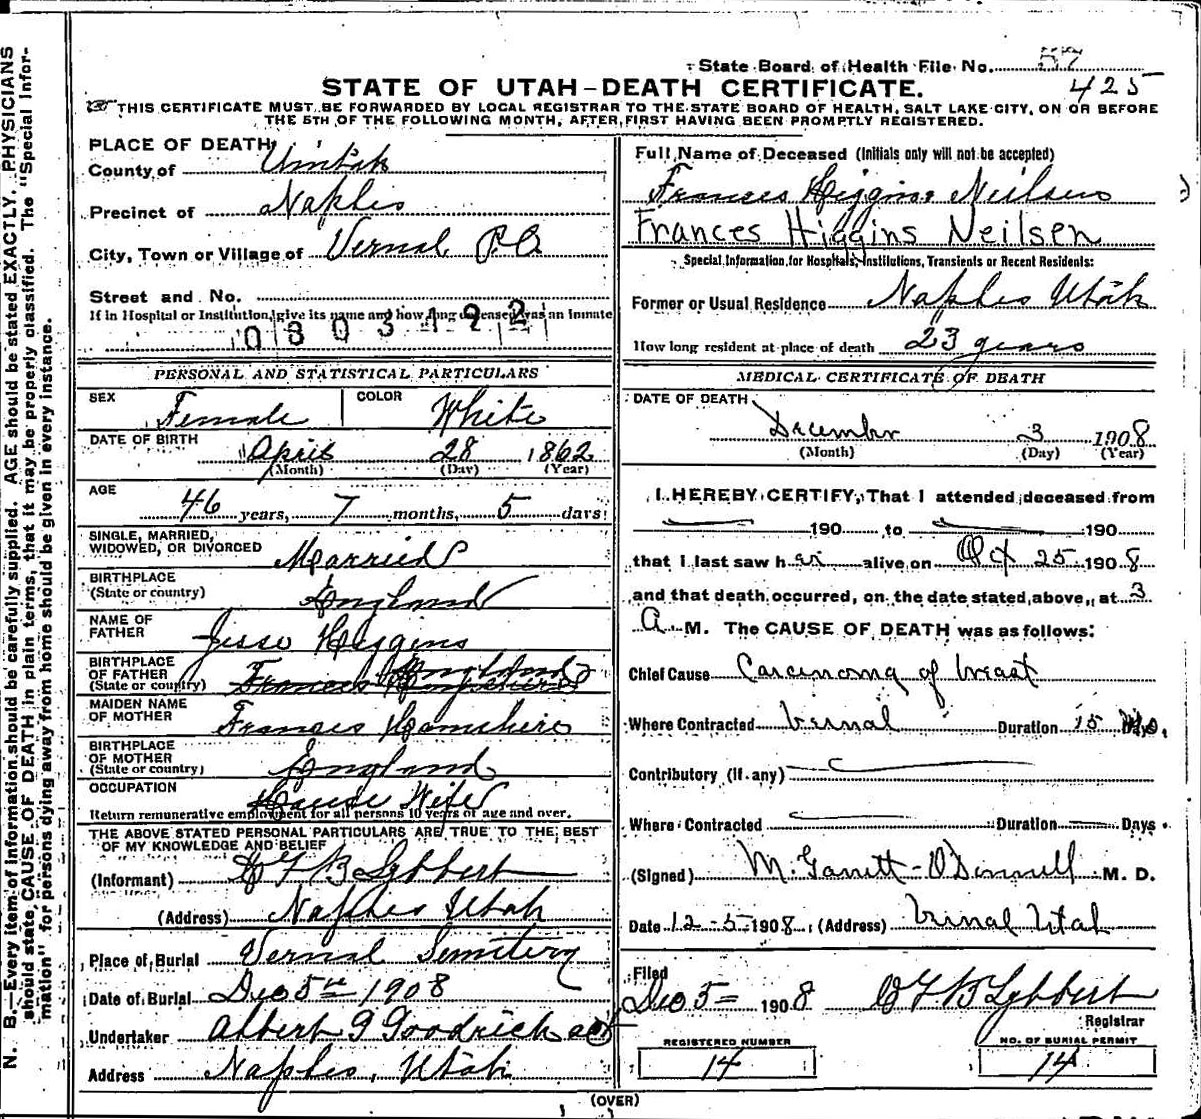 State Board of Health File No. 57
425
STATE OF UTAH-DEATH CERTIFICATE.
THIS CERTIFICATE MUST BE FORWARDED BY LOCAL REGISTRAR TO THE STATE BOARD OF HEALTH, SALT LAKE CITY, ON OR BEFORE
THE 5TH OF THE FOLLOWING MONTH, AFTER FIRST HAVING BEEN PROMPTLY REGISTERED.
N. B.—Every item of information should be carefully supplied. AGE should be stated EXACTLY. PHYSICIANS
should state CAUSE OF DEATH in plain terms, that it may be properly classified. The "Special Infor-
mation" for persons dying away from home should be given in every instance.
PLACE OF DEATH
County of Uintah
Precinct of Naples
City, Town or Village of Vernal P.O.
Street and No.
If in Hospital or Institution, give its name and how long deceased was an inmate
0803122
PERSONAL AND STATISTICAL PARTICULARS
SEX Female COLOR White
DATE OF BIRTH April 28 1862
(Month) (Day) (Year)
AGE
46 years, 7 months, 5 days
SINGLE, MARRIED,
WIDOWED, OR DIVORCED Married
BIRTHPLACE
(State or country) England
NAME OF
FATHER Jesse Higgins
BIRTHPLACE
OF FATHER England
(State or country) Frances Hampshire
MAIDEN NAME
OF MOTHER Frances Hamshire
BIRTHPLACE
OF MOTHER
(State or country) England
OCCUPATION House Wife
Return remunerative employment for all persons 10 years of age and over.
THE ABOVE STATED PERSONAL PARTICULARS ARE TRUE TO THE BEST
OF MY KNOWLEDGE AND BELIEF
(Informant) C F B Lybbert
(Address) Naples Utah
Place of Burial Vernal Semitery
Date of Burial Dec 5th 1908
Undertaker Albert G Goodrich
Address Naples, Utah
Full Name of Deceased (Initials only will not be accepted)
Frances Higgins Neilsen
Frances Higgins Neilsen
Special Information for Hospitals, Institutions, Transients or Recent Residents:
Former or Usual Residence Naples Utah
How long resident at place of death 23 years
MEDICAL CERTIFICATE OF DEATH
DATE OF DEATH
December 3 1908
(Month) (Day) (Year)
I HEREBY CERTIFY, That I attended deceased from
190 to 190
that I last saw her alive on Oct 25 1908
and that death occurred, on the date stated above, at 3
A. M. The CAUSE OF DEATH was as follows:
Chief Cause Carcinoma of breast
Where Contracted Vernal Duration 15 Mo.
Contributory (if any)
Where Contracted Duration Days
(Signed) M. Garrett-O'Donnell M. D.
Date 12-5-1908 (Address) Vernal Utah
Filed
Dec 5 1908 C F B Lybbert
Registrar
REGISTERED NUMBER
14
NO. OF BURIAL PERMIT
14
(OVER)